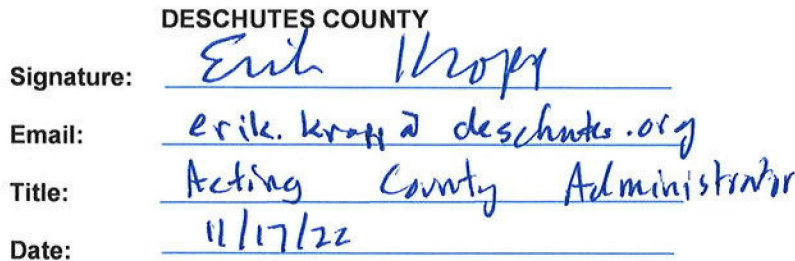 DESCHUTES COUNTY
Signature: Erik Kropp
Email: erik.kropp@deschutes.org
Title: Acting County Administrator
Date: 11/17/22